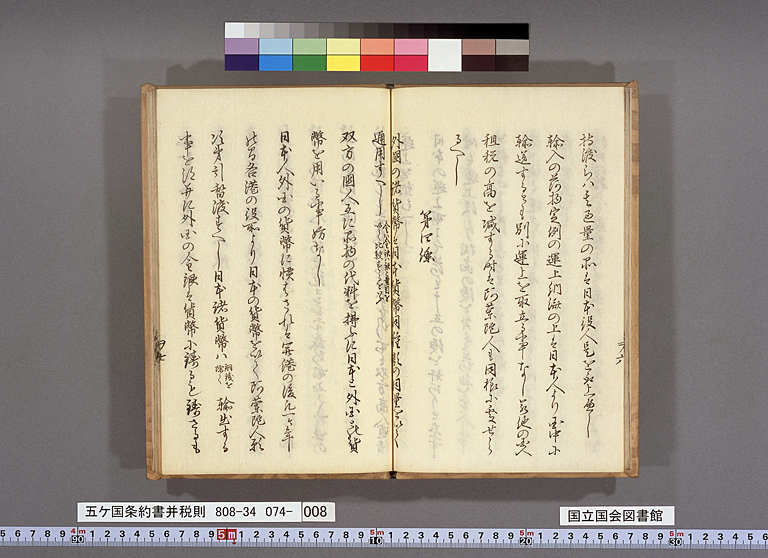 輸入の荷物定例の運上納済の上は日本人より国中に
輸送するとも別に運上を取立る事なし
租税の高を減する時は阿蘭陀人も同様に受せら
るへし
第四條
外国の諸貨幣は日本貨幣同種類の同量を以て
通用すへし 金ハ金銀ハ銀と量目を以て比較するを云
双方の國人互に品物の代料を拂ふに日本と外国との貨
幣を用いる事妨なし
日本人外国の貨幣に慣はされは開港の後凡一ケ年
の間各港の役所より日本の貨幣を以て阿蘭陀人願
次第引替渡すへし日本諸貨幣ハ 銅銭を除く 輸出する
事を得并に外国の金銀は貨幣に鋳ると鋳さるも
五ケ国条約書并税則 808-34 074- 008
国立国会図書館